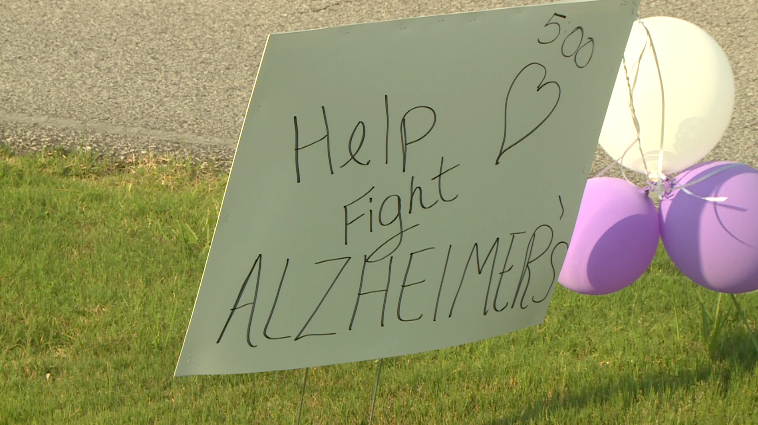 5:00
Help
Fight
ALZHEIMER'S